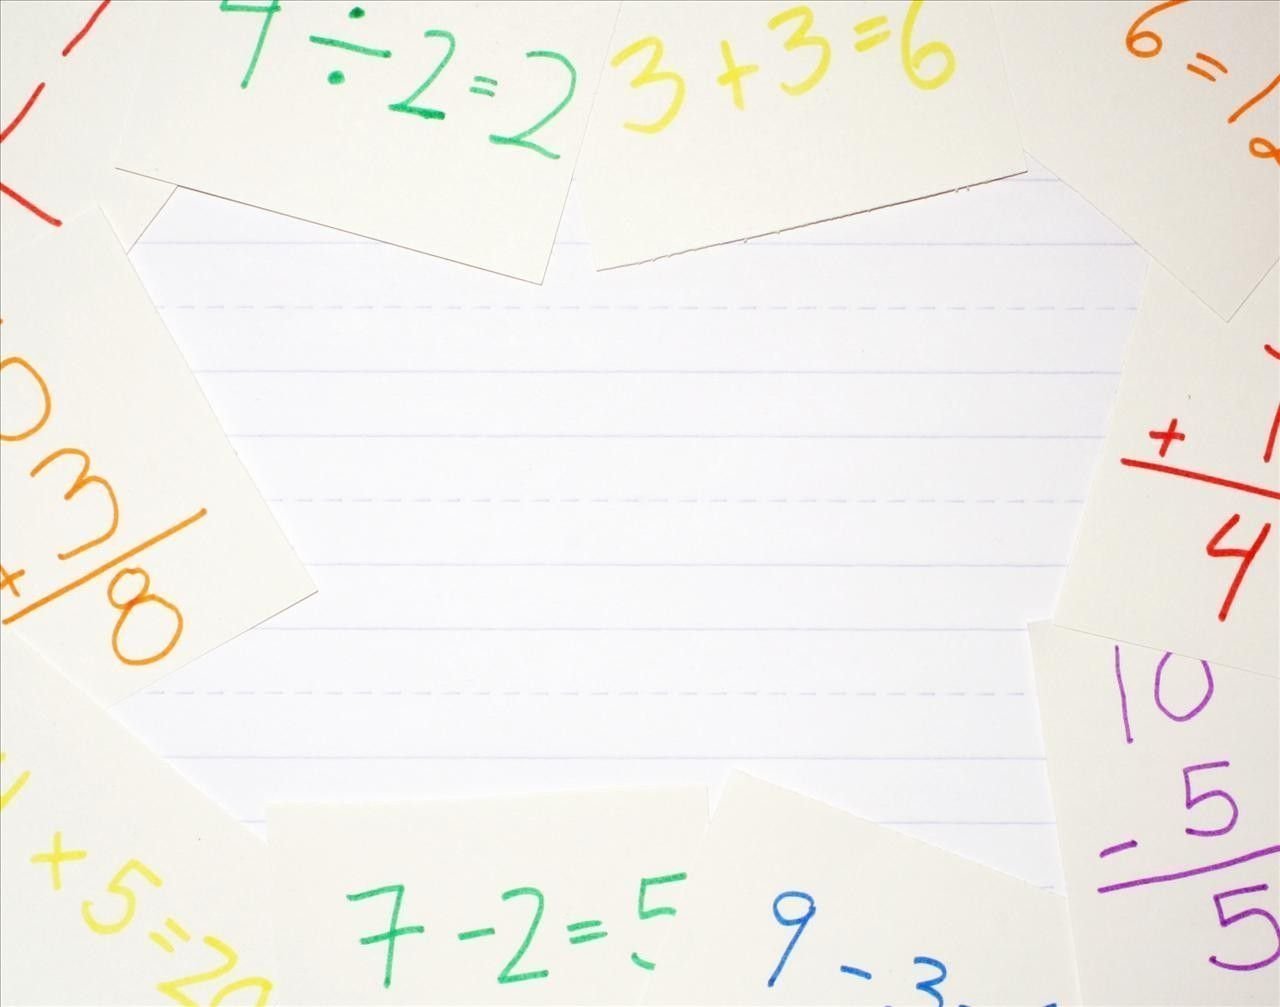 4 ÷ 2 = 2
3 + 3 = 6
6 =
+ 1
4
3
+
8
10
- 5
5
+ 5 = 20
7 - 2 = 5
9 - 3